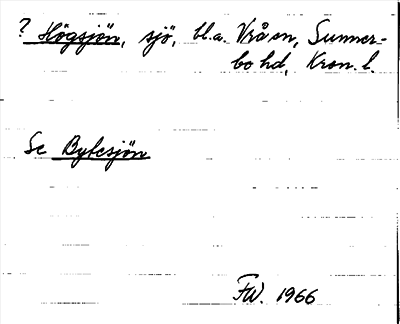 ? Högsjön, sjö, bl.a. Vrå sn, Sunner-
bo hd, Kron. l.
Se Bykesjön
FW. 1966